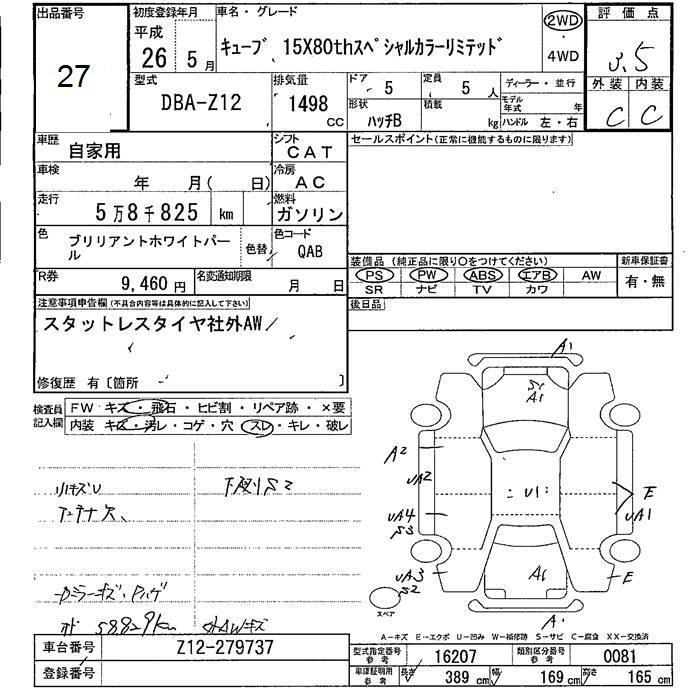 出品番号 初度登録年月 車名・グレード 2WD 評価点
27 平成 26年 5月 キューブ 15X80thスペシャルカラーリミテッド ・ 4WD 3.5
型式 排気量 ドア 5 定員 5人 ディーラー・並行 外装 内装
DBA-Z12 1498 CC 形状 ハッチB 積載 kg モデル年式 年 ハンドル 左・右 C C
車歴 自家用 シフト CAT セールスポイント(正常に機能するものに限ります)
車検 年 月( 日) 冷房 AC
走行 5万8千825 km 燃料 ガソリン
色 ブリリアントホワイトパール 色替 色コード QAB
装備品 (純正品に限り○をつけてください) 新車保証書
R券 9,460円 名変通知期限 月 日 PS PW ABS エアB AW 有・無
SR ナビ TV カワ
注意事項申告欄(不具合内容等は具体的に記入して下さい) 後日品
スタットレスタイヤ社外AW/
修復歴 有〔箇所 〕
検査員記入欄 FW キズ・飛石・ヒビ割・リペア跡・×要
内装 キズ・汚レ・コゲ・穴 スレ・キレ・破レ
A1
S1
A1
A2
UA2
U1
E
UA4
S3
UA1
UA3
S2
A1
E
A1
リキズU 下廻りS2
アンテナ欠、
ミラーキズ・Pハゲ
58829km 外AWキズ
スペア
A-キズ E-エクボ U-凹み W-補修跡 S-サビ C-腐食 XX-交換済
車台番号 Z12-279737 型式指定番号 参考 16207 類別区分番号 参考 0081
登録番号 車庫証明用 参考 長さ 389cm 幅 169cm 高さ 165cm